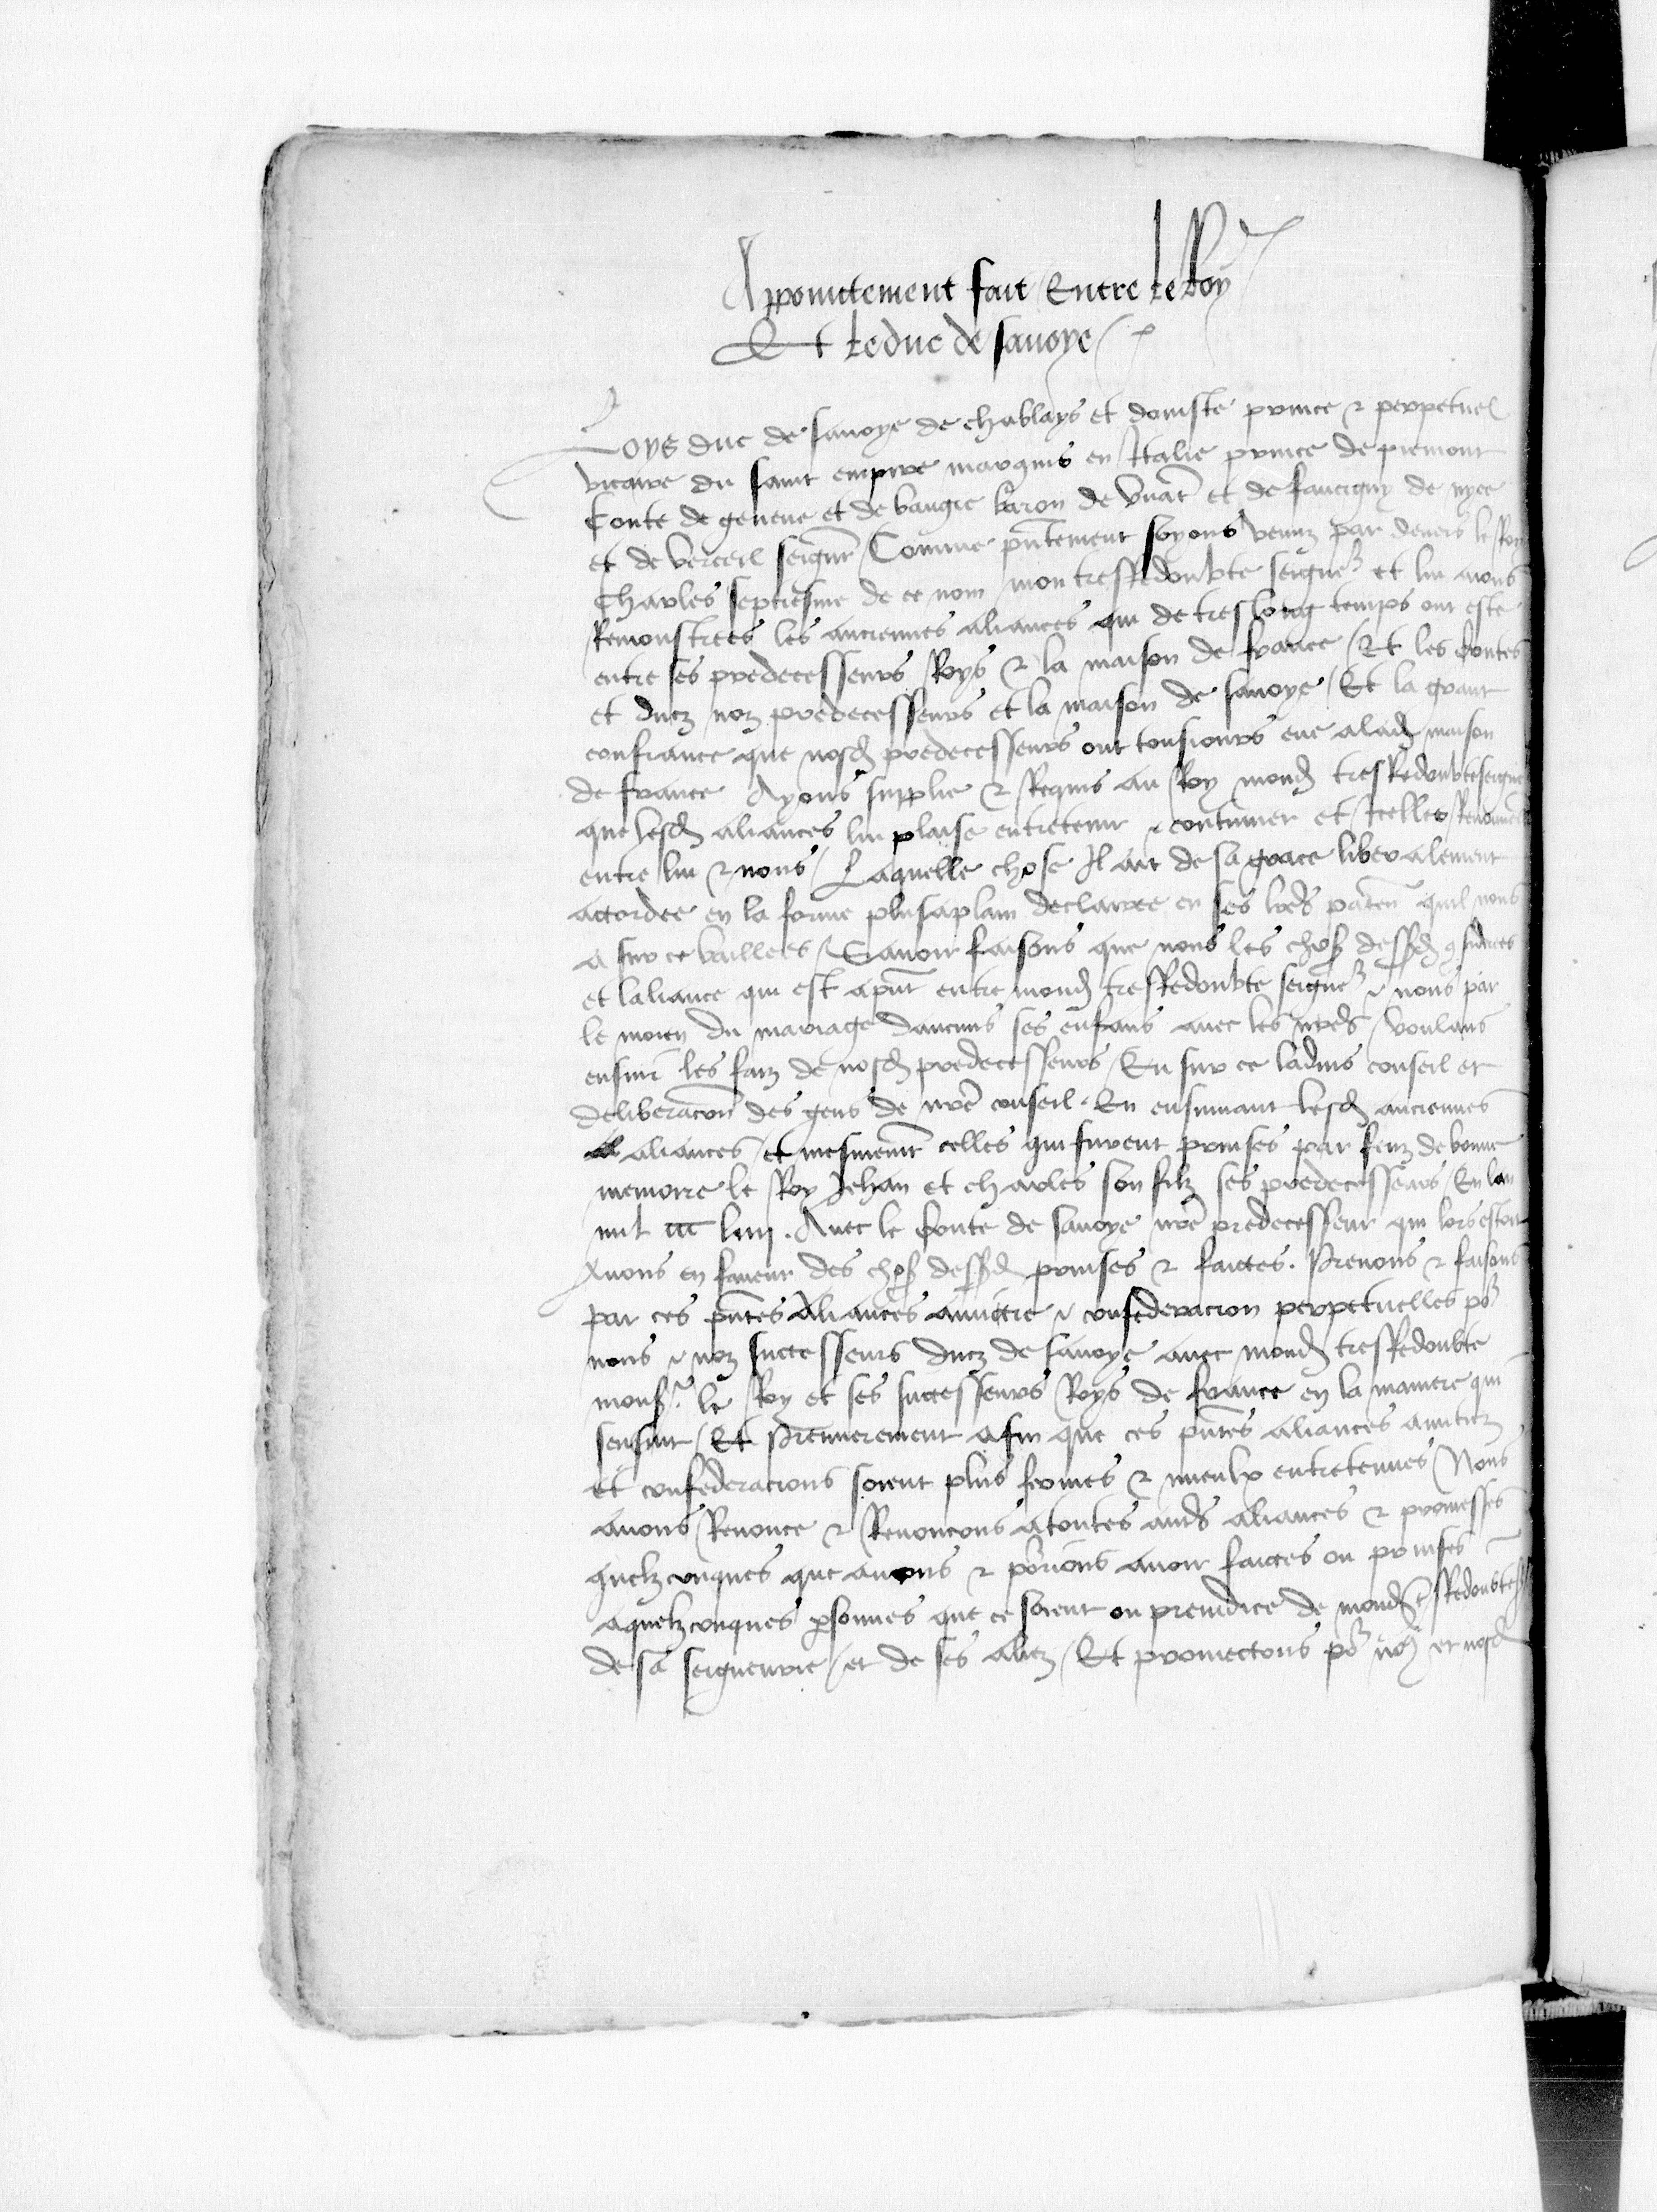 Appoinctement fait Entre le Roy
Et le duc de savoye
Loys duc de savoye de chablays et douste prince & perpetuel
vicaire du saint empire marquis en Italie prince de piemont
Conte de geneve et de baugie baron de vuat et de faucigny de nyce
et de verceil seignr Comme pntement soyons venuz par devers le Roy
Charles septiesme de ce nom mon tresRedoubte seignr et lui avons
Remonstrees les anciennes aliances qui de treslong temps ont este
entre ses predecesseurs Roys & la maison de france Et les Contes
et ducz noz predecesseurs et la maison de savoye Et la grant
confiance que nosd predecesseurs ont tousiours eue alad maison
de france Ayons supplie & Requis au Roy mond tresRedoubte seigne
que lesd aliances lui plaise entretenir & continuer et Icelles Renouveler
entre lui & nous Laquelle chose Il ait de sa grace liberalement
accordee en la forme plusaplain declairee en ses lres paten quil nous
a sur ce baillees Savoir faisons que nous les choses dessusd considerees
et laliance qui est apnt entre mond tresRedoubte seignr & nous par
le moien du mariage daucuns ses enfans avec les nres voulans
ensuir les faiz de nosd predecesseurs Eu sur ce ladvis conseil et
deliberacion des gens de nre conseil. En ensuivant lesd anciennes
aliances et mesmement celles qui furent prinses par feuz de bonne
memoire le Roy Jehan et charles son filz ses predecesseurs En lan
mil iiic liiij. Avec le Conte de savoye nre predecesseur qui lors estoit
Avons en faveur des choses dessusd prinses & faictes. Prenons & faisons
par ces pntes Aliances amictie & confederacion perpetuelles por
nous & noz successeurs ducz de savoye avec mond tresRedoubte
monsr le Roy et ses successeurs Roys de france en la maniere qui
sensuit Et Premierement afin que ces pntes aliances amitiez
et confederacions soient plus fermes & mieulx entretenues Nous
avons Renonce & Renoncons atoutes autres aliances & promesses
quelzconques que avons & porions avoir faictes ou prinses
aquelzconques personnes que ce soient ou preiudice de mond tres Redoubte sr
de sa seigneurie et de ses aliez Et promectons por nous et nosd